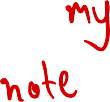 my
note